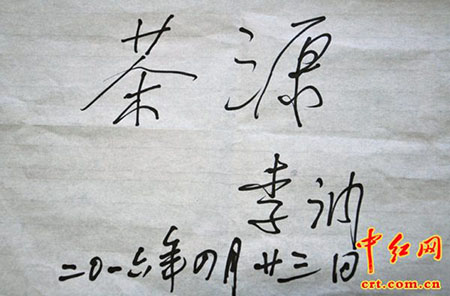 茶源
李讷
二〇一六年四月廿三日
中红网
crt.com.cn